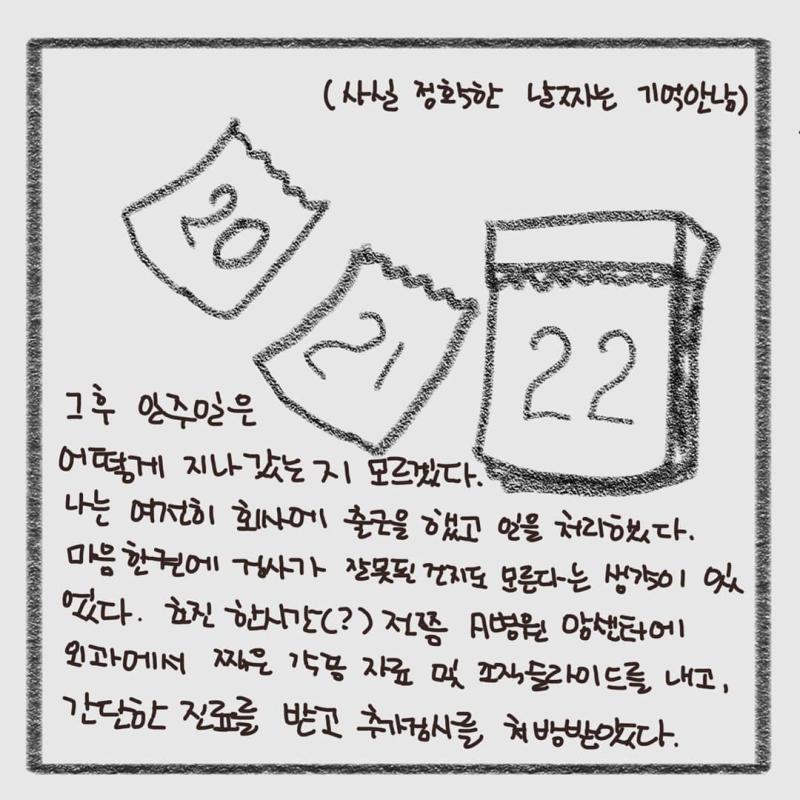 (사실 정확한 날짜는 기억안남)
20
21
22
그후 일주일은
어떻게 지나갔는지 모르겠다.
나는 여전히 회사에 출근을 했고 일을 처리했다.
마음 한켠에 검사가 잘못된 건지도 모른다는 생각이 있
었다. 초진 한시간(?) 전쯤 A병원 암센터에
외과에서 찍은 각종 자료 및 조직슬라이드를 내고,
간단한 진료를 받고 추가검사를 처방받았다.